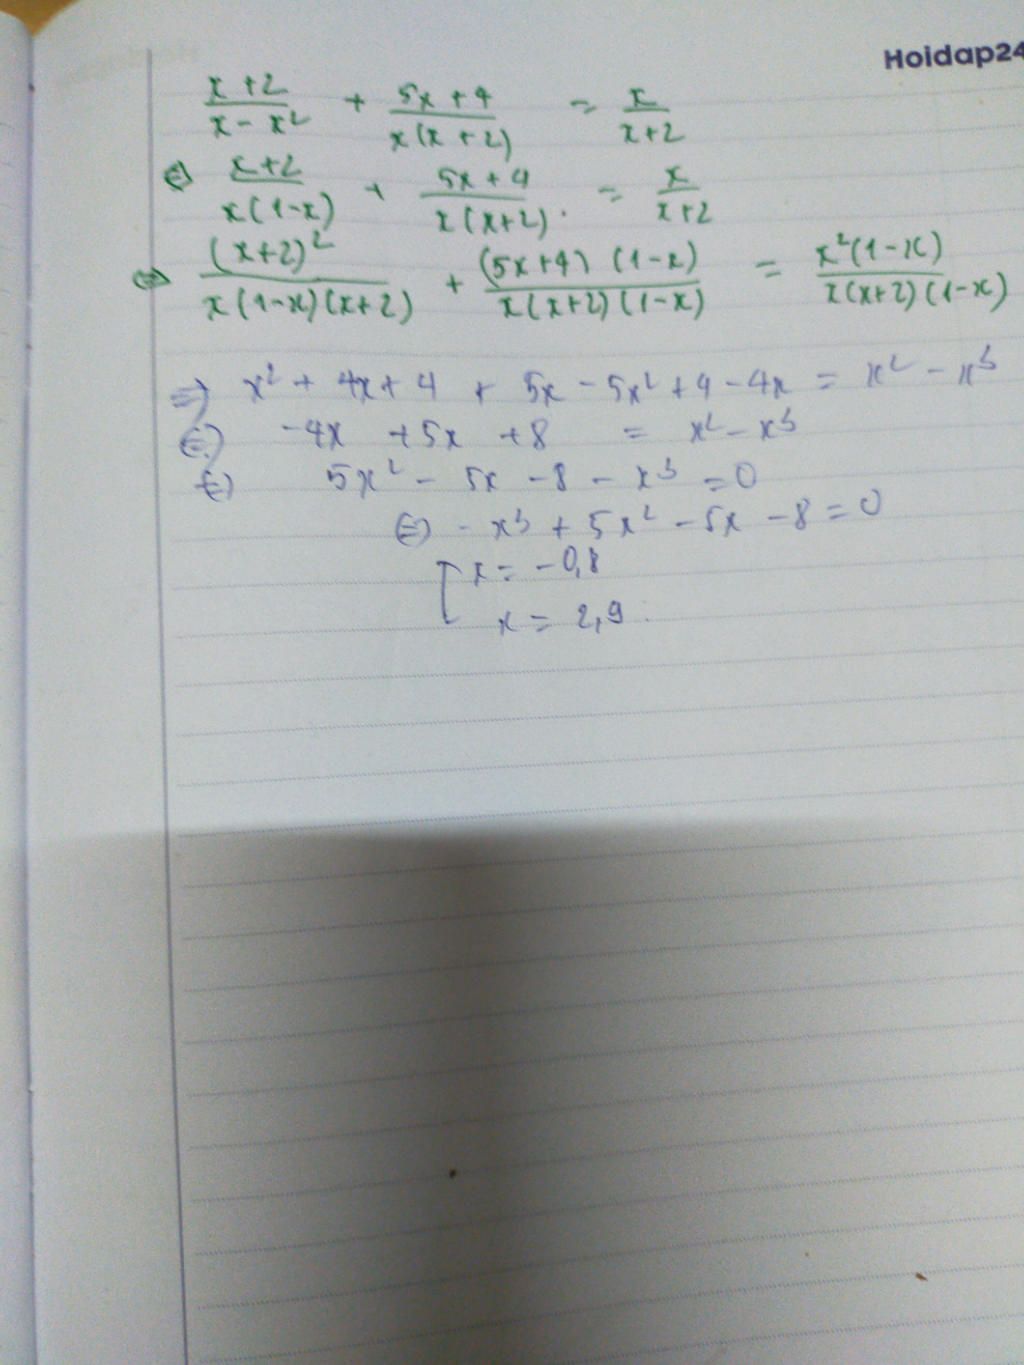 Hoidap24
x+2/x-x² + 5x+4/x(x+2) = x/x+2
⇔ x+2/x(1-x) + 5x+4/x(x+2) = x/x+2
⇔ (x+2)²/x(1-x)(x+2) + (5x+4)(1-x)/x(x+2)(1-x) = x²(1-x)/x(x+2)(1-x)
⇒ x² + 4x + 4 + 5x - 5x² + 4 - 4x = x² - x³
⇔ -4x + 5x + 8 = x² - x³
⇔ 5x² - 5x - 8 - x³ = 0
⇔ - x³ + 5x² - 5x - 8 = 0
[ x = -0,8
x = 2,9